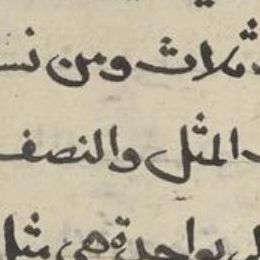 ثلاث ومن نسـ
المثل والنصف
بواحدة هي مثل